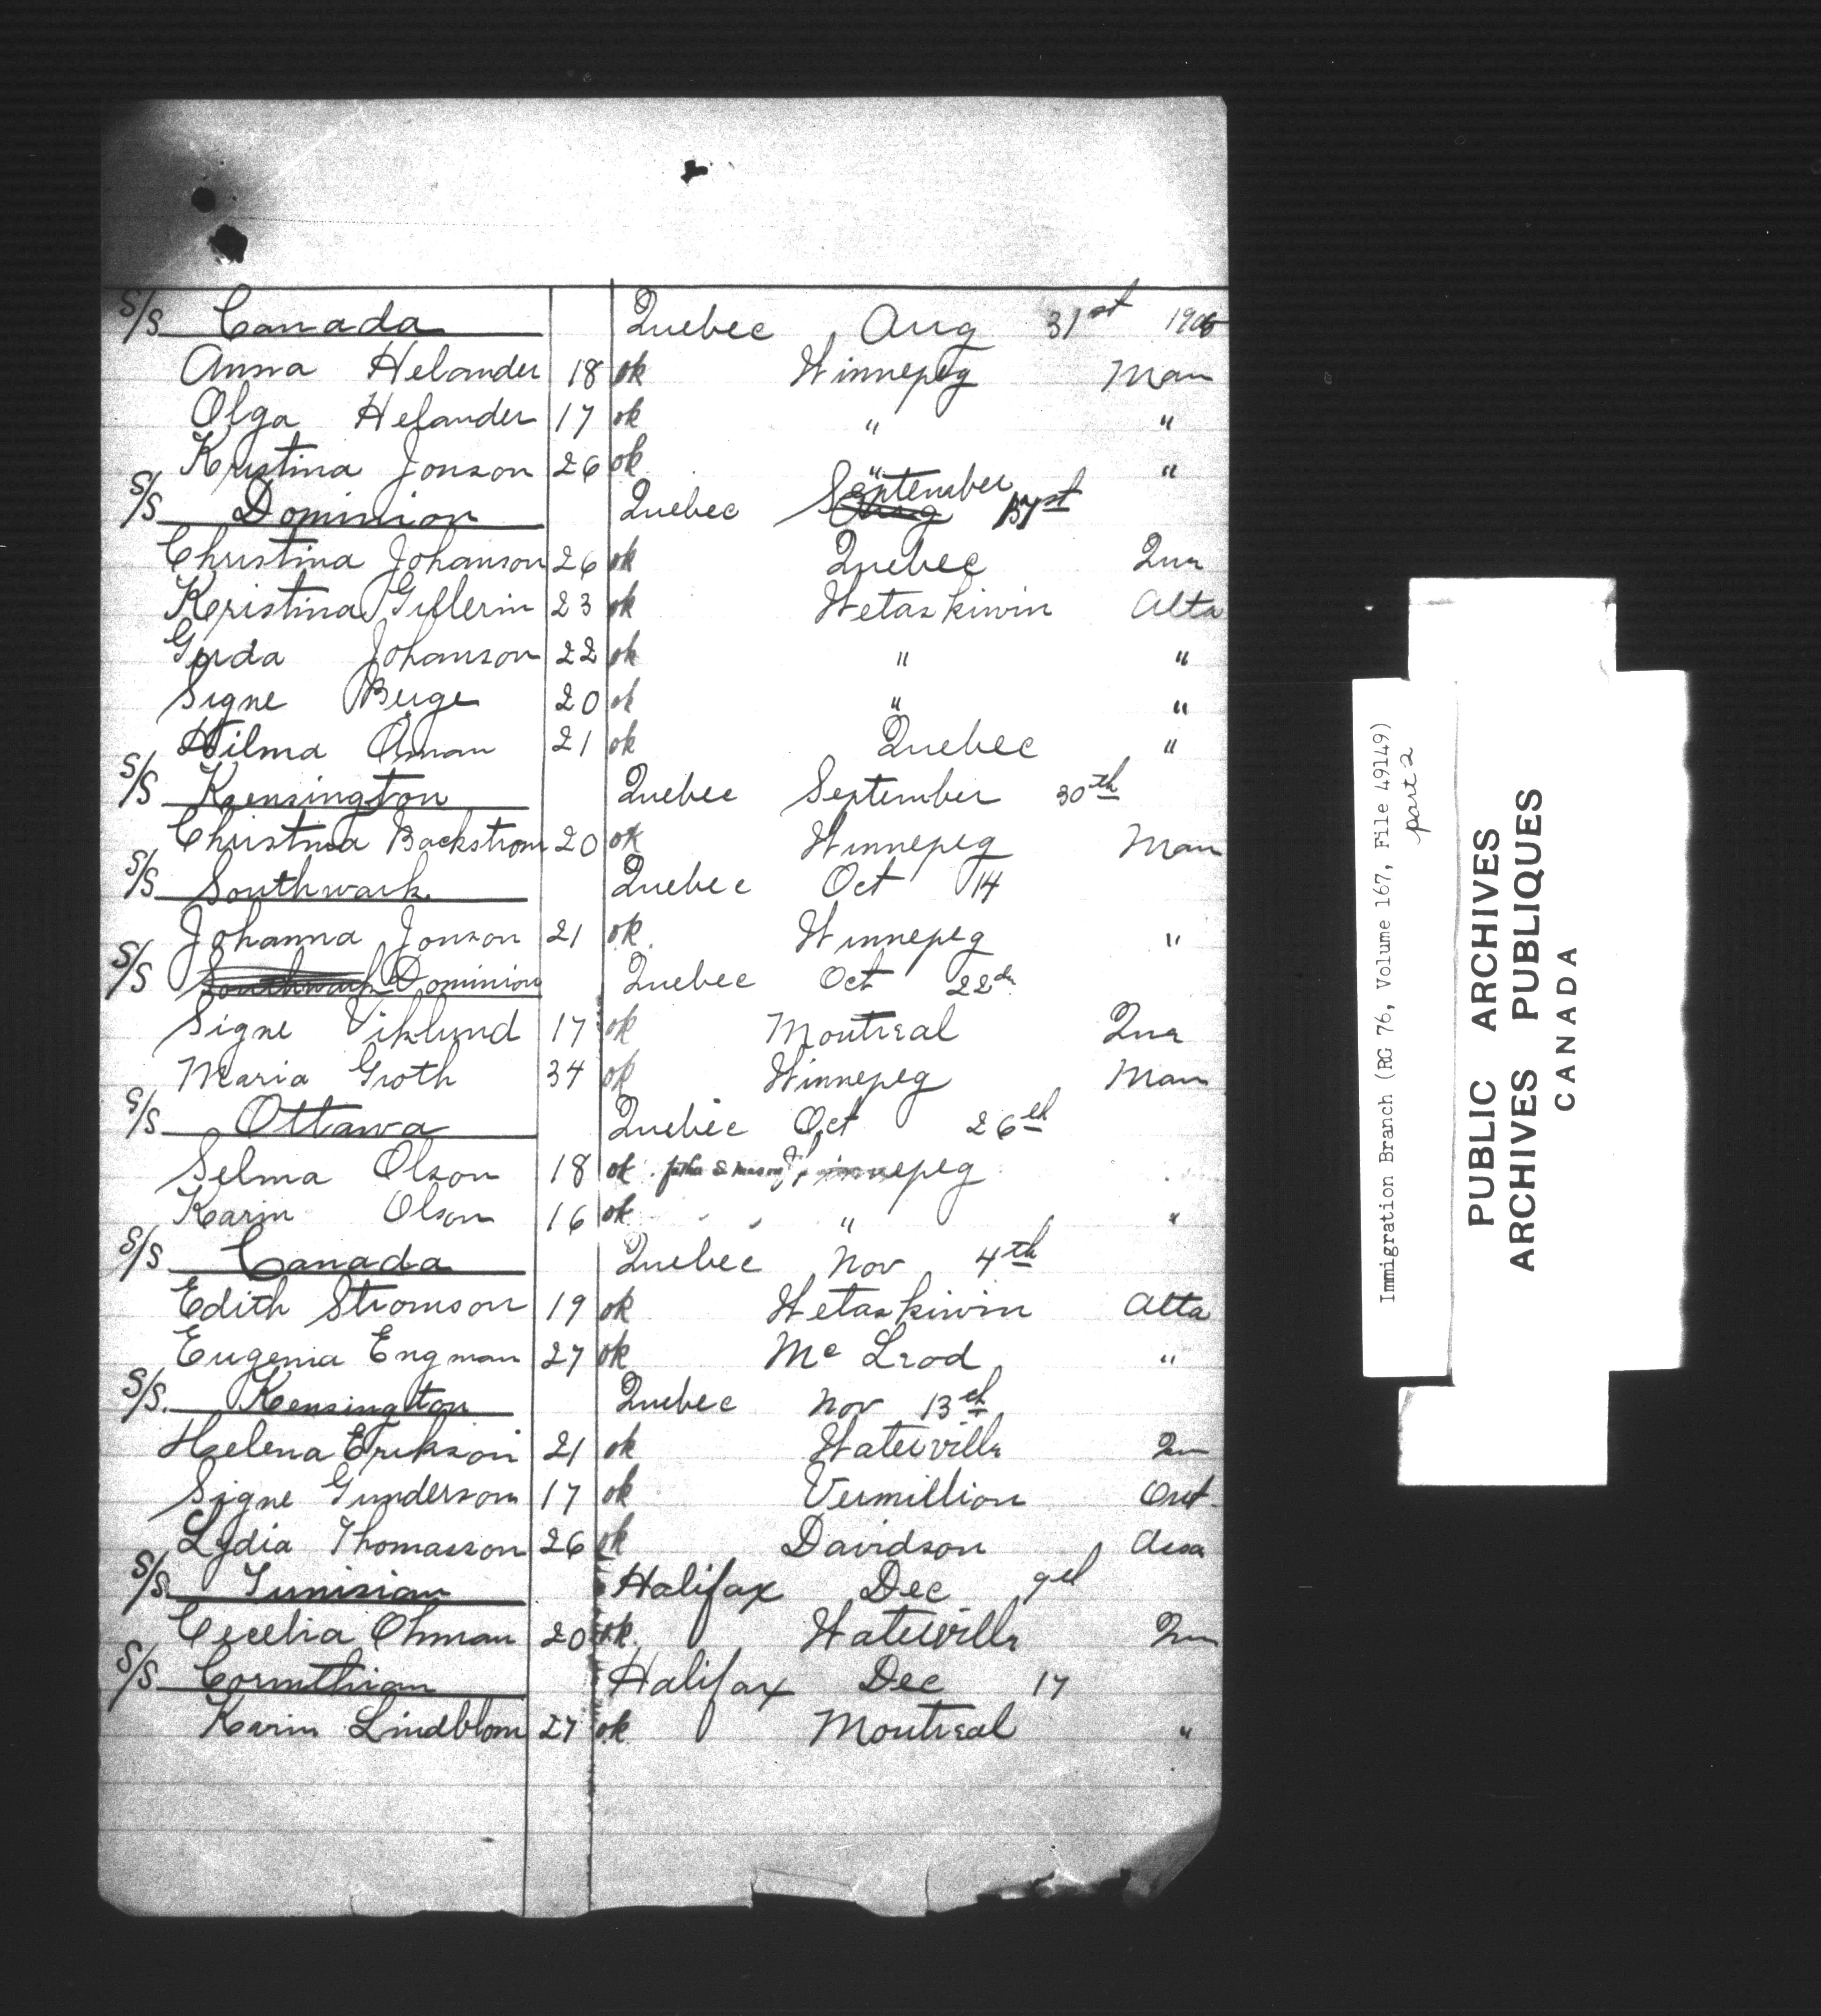 S/S Canada Quebec Aug 31st 1905
Anna Helander 18 ok Winnepeg Man
Olga Helander 17 ok " "
Kristina Jonson 26 ok " "
S/S Dominion Quebec September
Christina Johanson 26 ok Quebec Que
Kristina Gullerin 23 ok Wetaskiwin Alta
Gerda Johanson 22 ok " "
Signe Berge 20 ok " "
Hilma Oman 21 ok Quebec "
S/S Kensington Quebec September 30th
Christina Backstrom 20 ok Winnepeg Man
S/S Southwark Quebec Oct 14
Johanna Jonson 21 ok Winnepeg "
S/S Southwark Dominion Quebec Oct 22d
Signe Viklund 17 ok Montreal Que
Maria Groth 34 ok Winnepeg Man
S/S Ottawa Quebec Oct 26th
Selma Olson 18 ok Winnepeg
Karin Olson 16 ok " "
S/S Canada Quebec Nov 4th
Edith Stromson 19 ok Wetaskiwin Alta
Eugenia Engman 27 ok Mc Leod "
S/S. Kensington Quebec Nov 13th
Helena Erikson 21 ok Waterville Que
Signe Gunderson 17 ok Vermillion Ont
Lydia Thomasson 26 ok Davidson Assa
S/S. Tunisian Halifax Dec 9th
Cecelia Ohman 20 ok. Waterville Que
S/S Corinthian Halifax Dec 17
Karin Lindblom 27 ok Montreal "
Immigration Branch (RG 76, Volume 167, File 49149)
part 2
PUBLIC ARCHIVES
ARCHIVES PUBLIQUES
CANADA